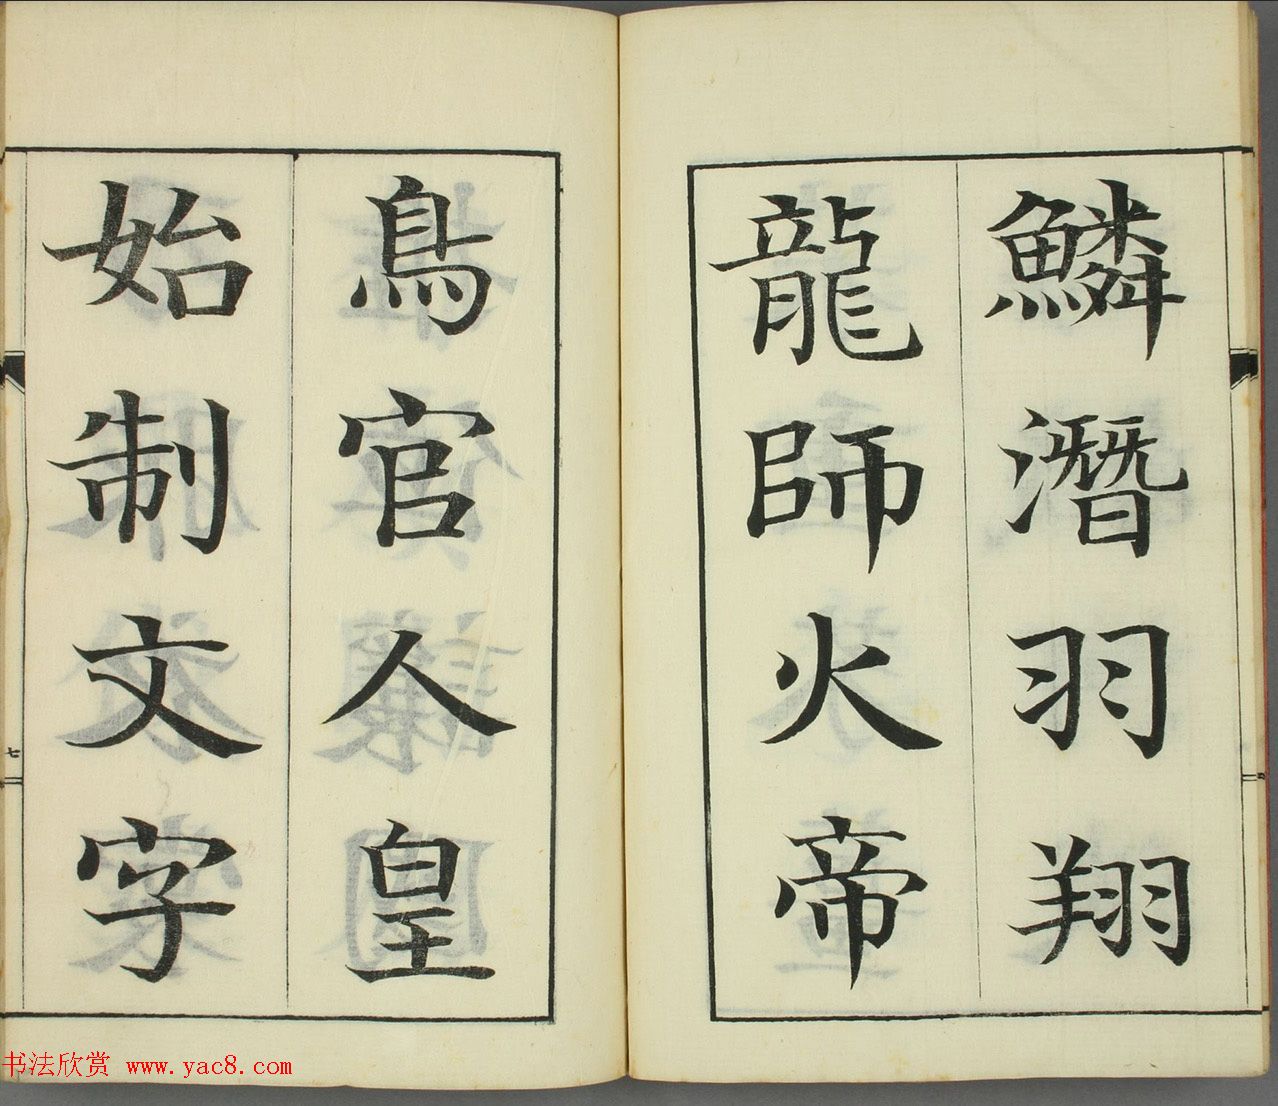 鱗潛羽翔
龍師火帝
鳥官人皇
始制文字
七
书法欣赏 www.yac8.com